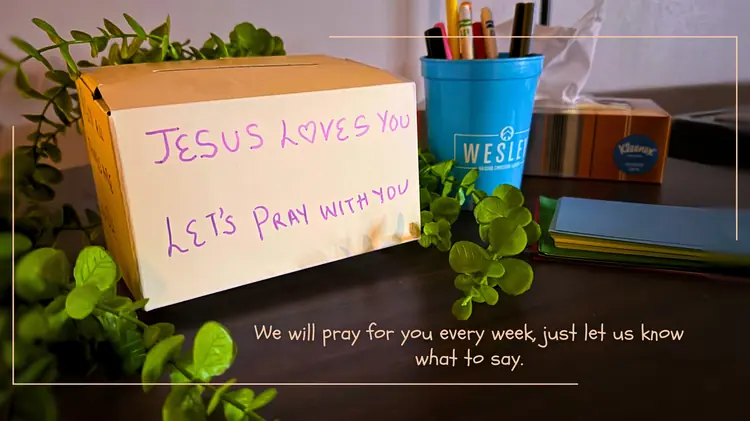 JESUS LOVES YOU
LET'S PRAY WITH YOU
WESLE
Kleenex
We will pray for you every week, just let us know
what to say.